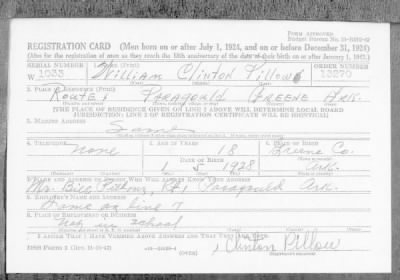 Form Approved
Budget Bureau No.
REGISTRATION CARD (Men born on or after July 1, 1924, and on or before December 31, 1924)
(Also for the registration of men as they reach the 18th anniversary of the date of their birth on or after January 1, 1925.)
SERIAL NUMBER
1. Name (Print)
ORDER NUMBER
W 1033
William Clinton Pillow
13270
2. Place of Residence (Print)
Route 1 Paragould Greene Ark.
[THE PLACE OF RESIDENCE GIVEN ON LINE 2 ABOVE WILL DETERMINE LOCAL BOARD
JURISDICTION; LINE 2 OF REGISTRATION CERTIFICATE WILL BE IDENTICAL]
3. Mailing Address
Same
4. Telephone
5. Age in Years
6. Place of Birth
none
18
Greene Co.
Date of Birth
1 5 1928
Ark.
7. Name and Address of Person Who Will Always Know Your Address
Mr. Bill Rt 1 Paragould Ark.
8. Employer's Name and Address
Same as line 7
9. Place of Employment or Business
Not in school
I Affirm That I Have Verified Above Answers and That They Are True.
DSS Form 1
(over)
Clinton Pillow